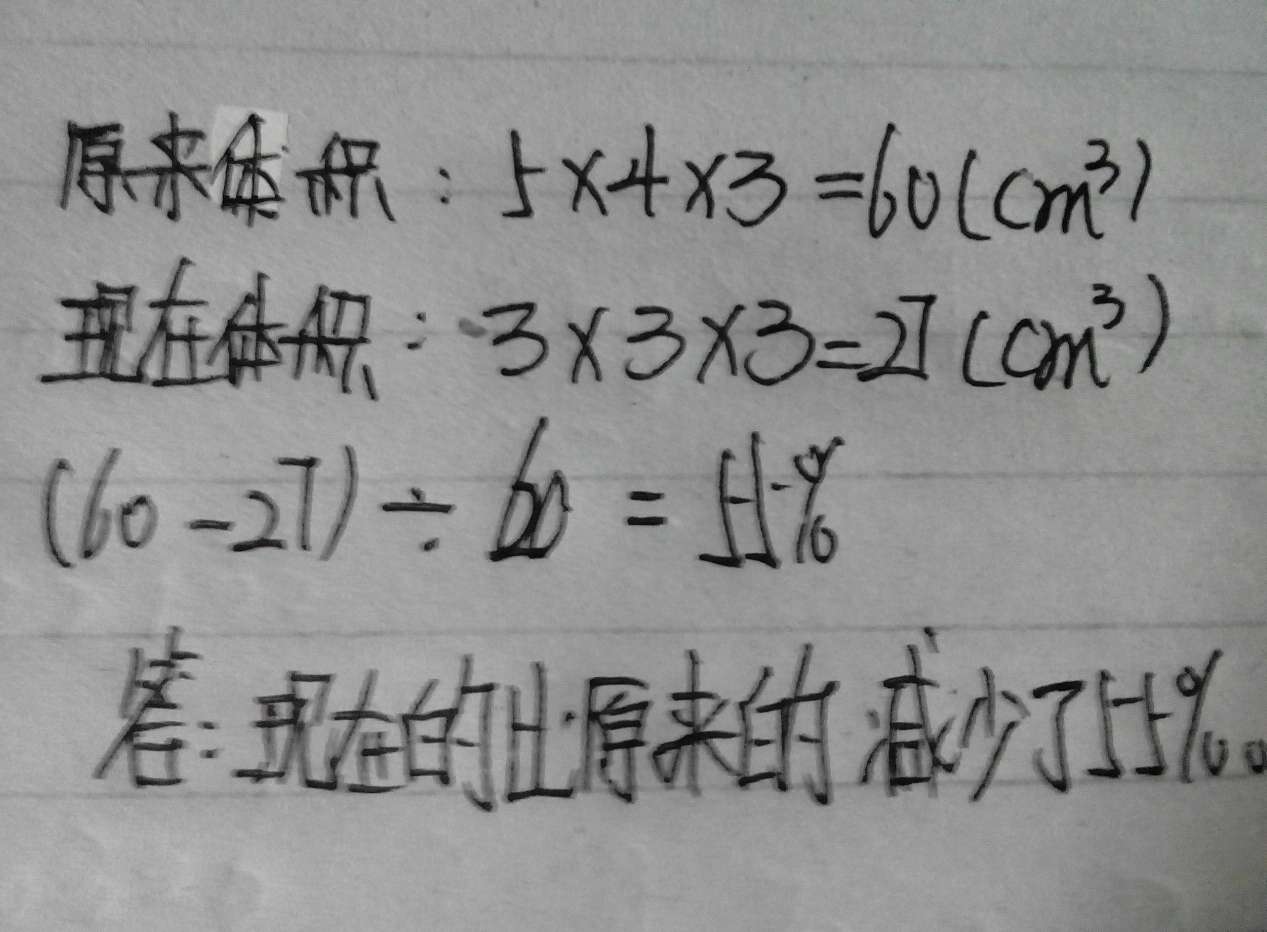 原来体积：5×4×3=60(cm³)
现在体积：3×3×3=27(cm³)
(60-27)÷60=55%
答：现在的比原来的减少了55%。